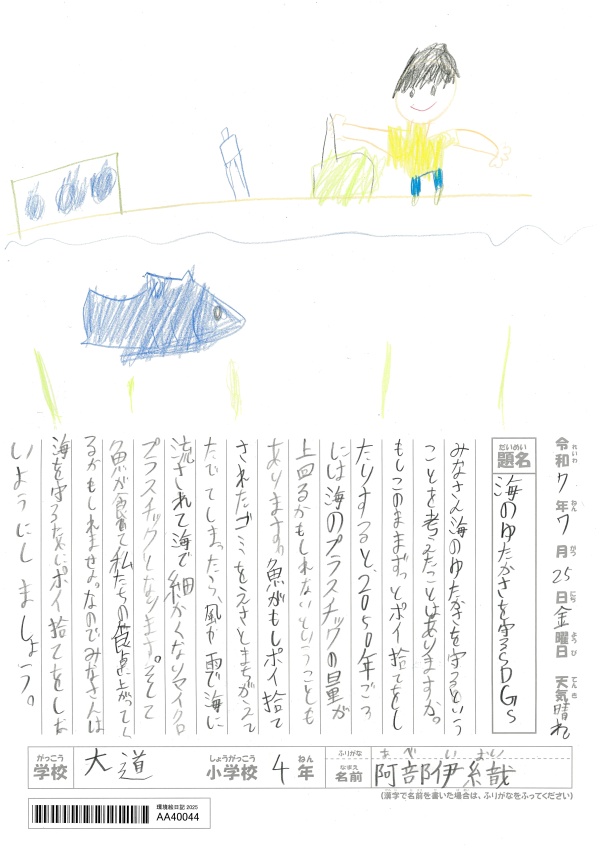 令和7年7月25日金曜日 天気晴れ
れいわ ねん がつ にち ようび てんき
題名 海のゆたかさを守るSDGs
だいめい
みなさん海のゆたかさを守るという
ことを考えたことはありますか。
もしこのままずっとポイ捨てをし
たりすると、2050年ごろ
には海のプラスチックの量が
上回るかもしれないということも
あります。魚がもしポイ捨て
されたゴミをえさとまちがえて
たべてしまったら、風や雨で海に
流されて海で細かくなりマイクロ
プラスチックとなります。そして
魚が食べて私たちの食卓に上がってく
るかもしれません。なのでみなさんは
海を守るためにポイ捨てをしな
いようにしましょう。
がっこう しょうがっこう ねん ふりがな あべ いおい
学校 大道 小学校 4年 なまえ 名前 阿部伊織哉
(漢字で名前を書いた場合は、ふりがなをふってください)
環境絵日記 2025
AA40044